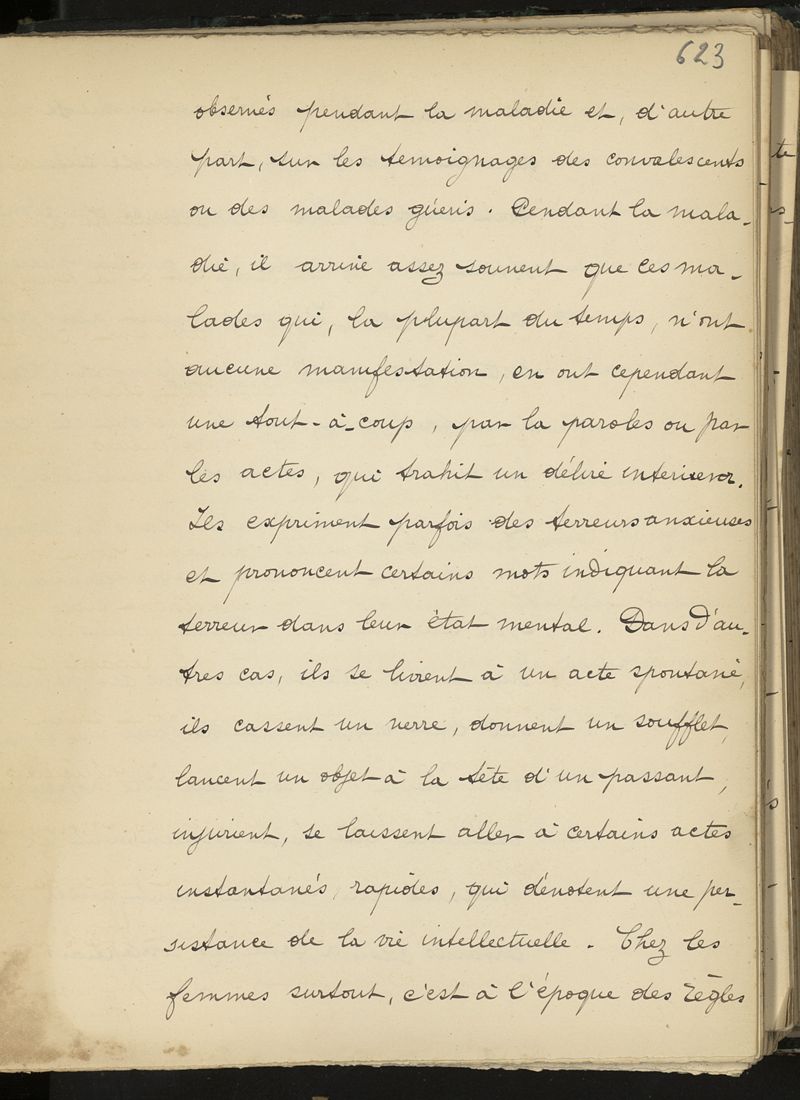 623
observés pendant la maladie et, d'autre
part, sur les temoignages des convalescents
ou des malades guéris. Pendant la mala-
die, il arrive assez souvent que ces ma-
lades qui, la plupart du temps, n'ont
aucune manifestation, en ont cependant
une tout-à-coup, par la paroles ou par
les actes, qui trahit un délire interieur.
Ils expriment parfois des terreurs anxieuses
et prononcent certains mots indiquant la
terreur dans leur état mental. Dans d'au-
tres cas, ils se livrent à un acte spontané,
ils cassent un verre, donnent un soufflet,
lancent un objet à la tête d'un passant,
injurient, se laissent aller à certains actes
instantanés, rapides, qui dénotent une per-
sistance de la vie intellectuelle. Chez les
femmes surtout, c'est à l'époque des règles